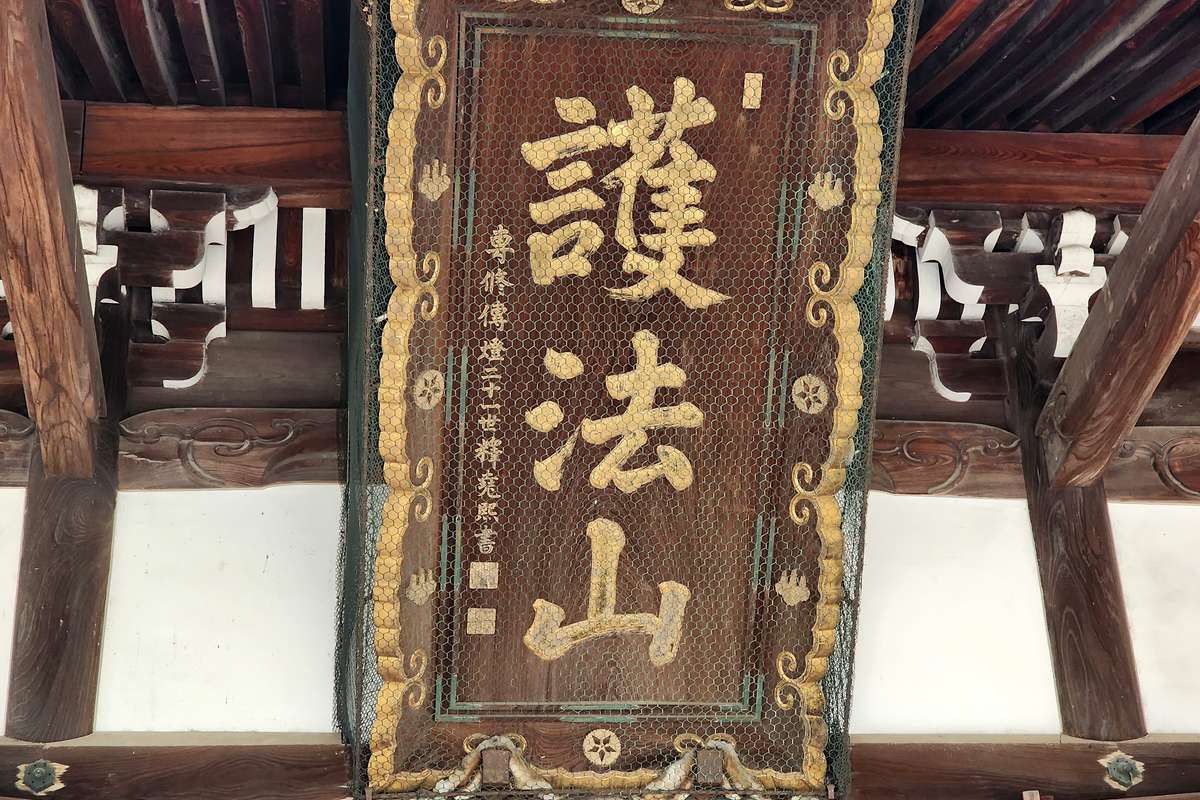 護法山
專修傳燈二十一世釋堯熙書